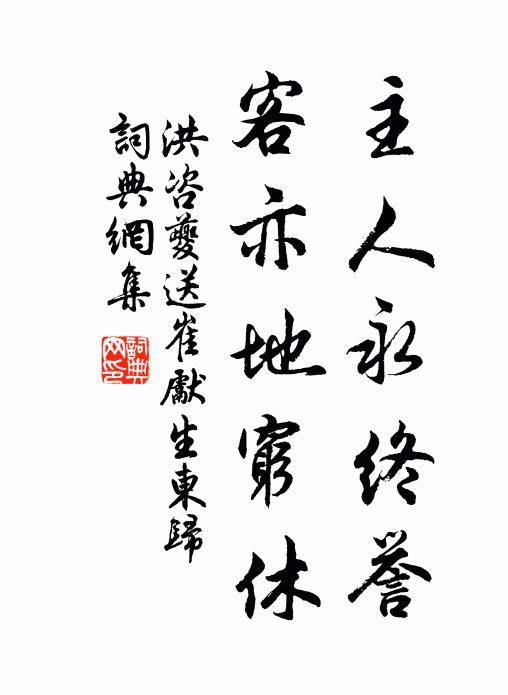 主人永終譽
客亦地窮休
洪咨夔送崔獻生東歸
詞典網集
詞典网印